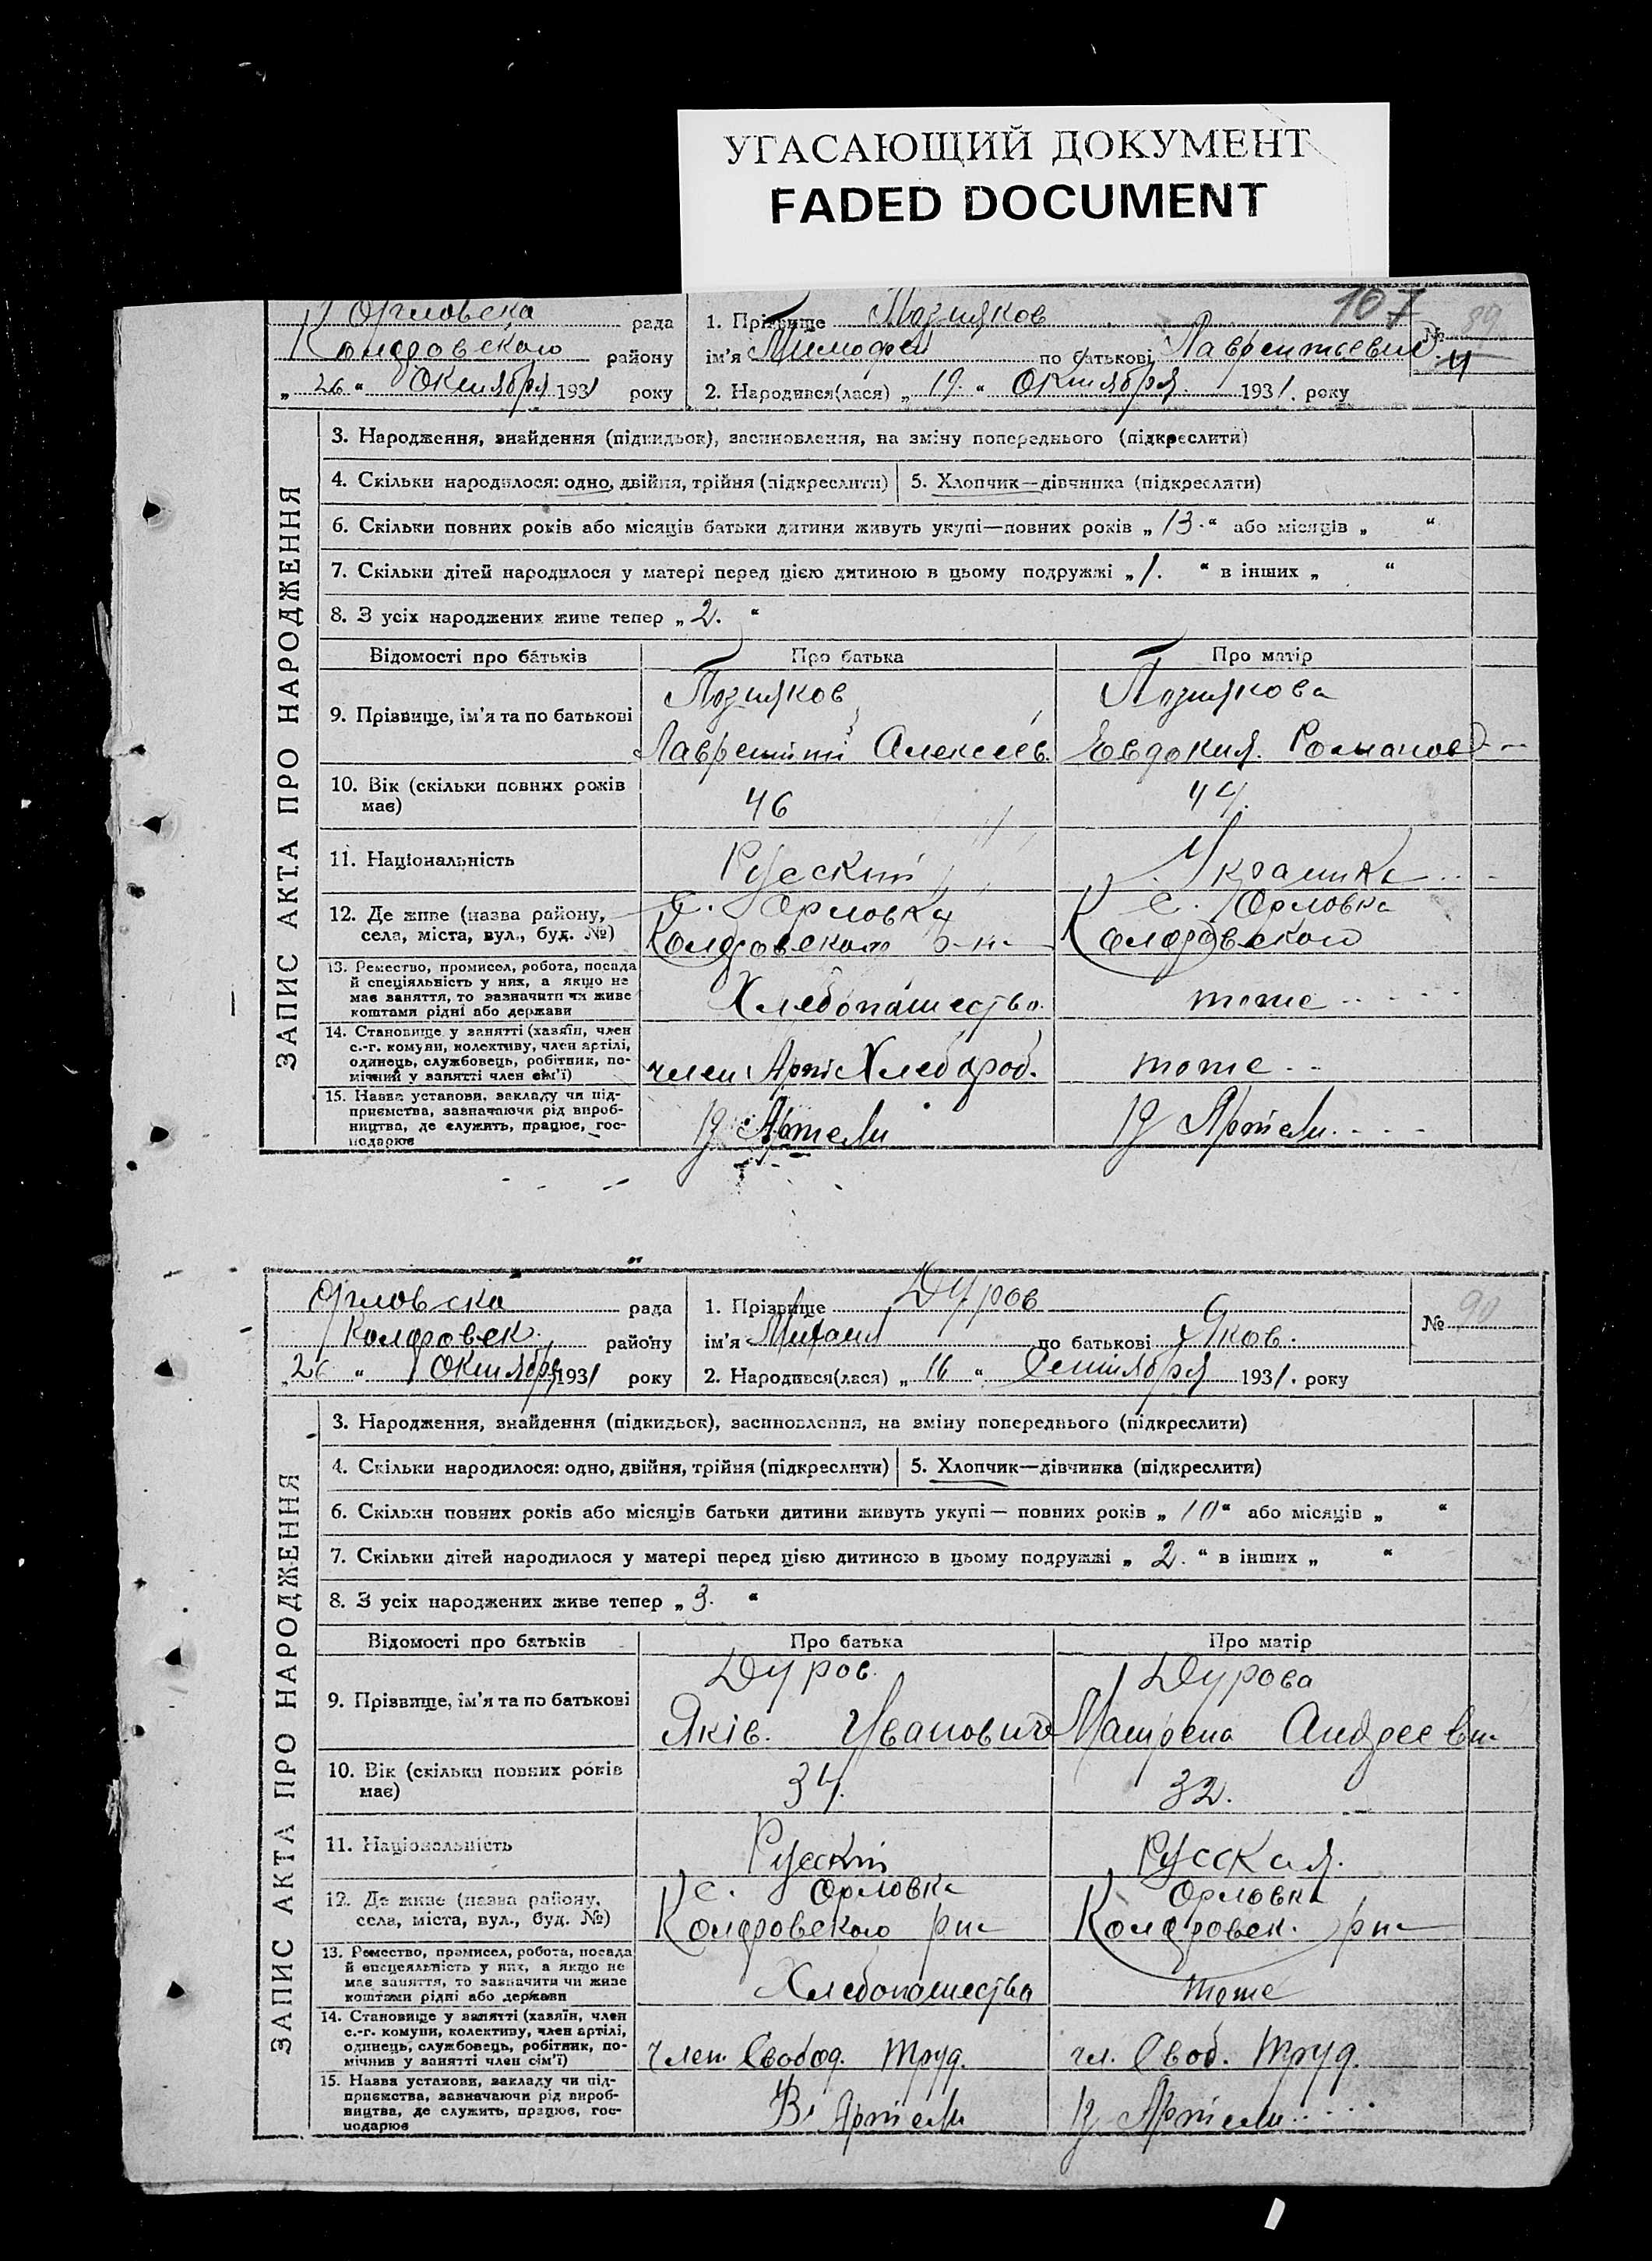 УГАСАЮЩИЙ ДОКУМЕНТ
FADED DOCUMENT
107
Орловска рада
района
1. Прізвище Позняков
№ 89
4
району
ім'я Тимофей по батькові Лаврентьевич
„ 26 “ Октября 1931 року
2. Народився(лася) „ 19. “ Октября 1931. року
ЗАПИС АКТА ПРО НАРОДЖЕННЯ
3. Народження, знайдення (підкидьок), засиновлення, на зміну попереднього (підкреслити)
4. Скільки народилося: одно, двійня, трійня (підкреслити)
5. Хлопчик—дівчинка (підкреслити)
6. Скільки повних років або місяців батьки дитини живуть укупі—повних років „ 13. “ або місяців „ “
7. Скільки дітей народилося у матері перед цією дитиною в цьому подружжі „ 1. “ в інших „ “
8. З усіх народжених живе тепер „ 2. “
Відомості про батьків
Про батька
Про матір
9. Прізвище, ім'я та по батькові
Позняков
Лаврентий Алексеев.
Познякова
Евдокия. Романов
10. Вік (скільки повних років має)
46
44.
11. Національність
Русский
Украинка
12. Де живе (назва району, села, міста, вул., буд. №)
с. Орловка
с. Орловка
13. Ремество, промисел, робота, посада й спеціяльність у них, а якщо не має заняття, то зазначити чи живе коштами рідні або держави
Хлебопашество.
тоже
14. Становище у занятті (хазяїн, член с.-г. комуни, колективу, член артілі, одинець, службовець, робітник, помічний у занятті член сім'ї)
член Арт Хлебороб.
тоже
15. Назва установи, закладу чи підприємства, зазначаючи рід виробництва, де служить, працює, господарює
В Артели
В Артели
Орловска рада
1. Прізвище Дуров
№ 90
району
ім'я Михаил по батькові Яков.
„ 26 “ Октября 1931 року
2. Народився(лася) „ 16 “ Сентября 1931. року
ЗАПИС АКТА ПРО НАРОДЖЕННЯ
3. Народження, знайдення (підкидьок), засиновлення, на зміну попереднього (підкреслити)
4. Скільки народилося: одно, двійня, трійня (підкреслити)
5. Хлопчик—дівчинка (підкреслити)
6. Скільки повних років або місяців батьки дитини живуть укупі— повних років „ 10 “ або місяців „ “
7. Скільки дітей народилося у матері перед цією дитиною в цьому подружжі „ 2. “ в інших „ “
8. З усіх народжених живе тепер „ 3. “
Відомості про батьків
Про батька
Про матір
9. Прізвище, ім'я та по батькові
Дуров.
Яків. Иванович
Дурова
Матрена Андреевн
10. Вік (скільки повних років має)
34.
32.
11. Національність
Русский
Русская.
12. Де живе (назва району, села, міста, вул., буд. №)
с. Орловка
Орловка
13. Ремество, промисел, робота, посада й спецсяльність у них, а якщо не має заняття, то зазначити чи живе коштами рідні або держави
Хлебопашества
тоже
14. Становище у занятті (хазяїн, член с.-г. комуни, колективу, член артілі, одинець, службовець, робітник, помічник у занятті член сім'ї)
член. Свобод. Труд.
чл. Своб. Труд.
15. Назва установи, закладу чи підприємства, зазначаючи рід виробництва, де служить, працює, господарює
В Артели
В Артели